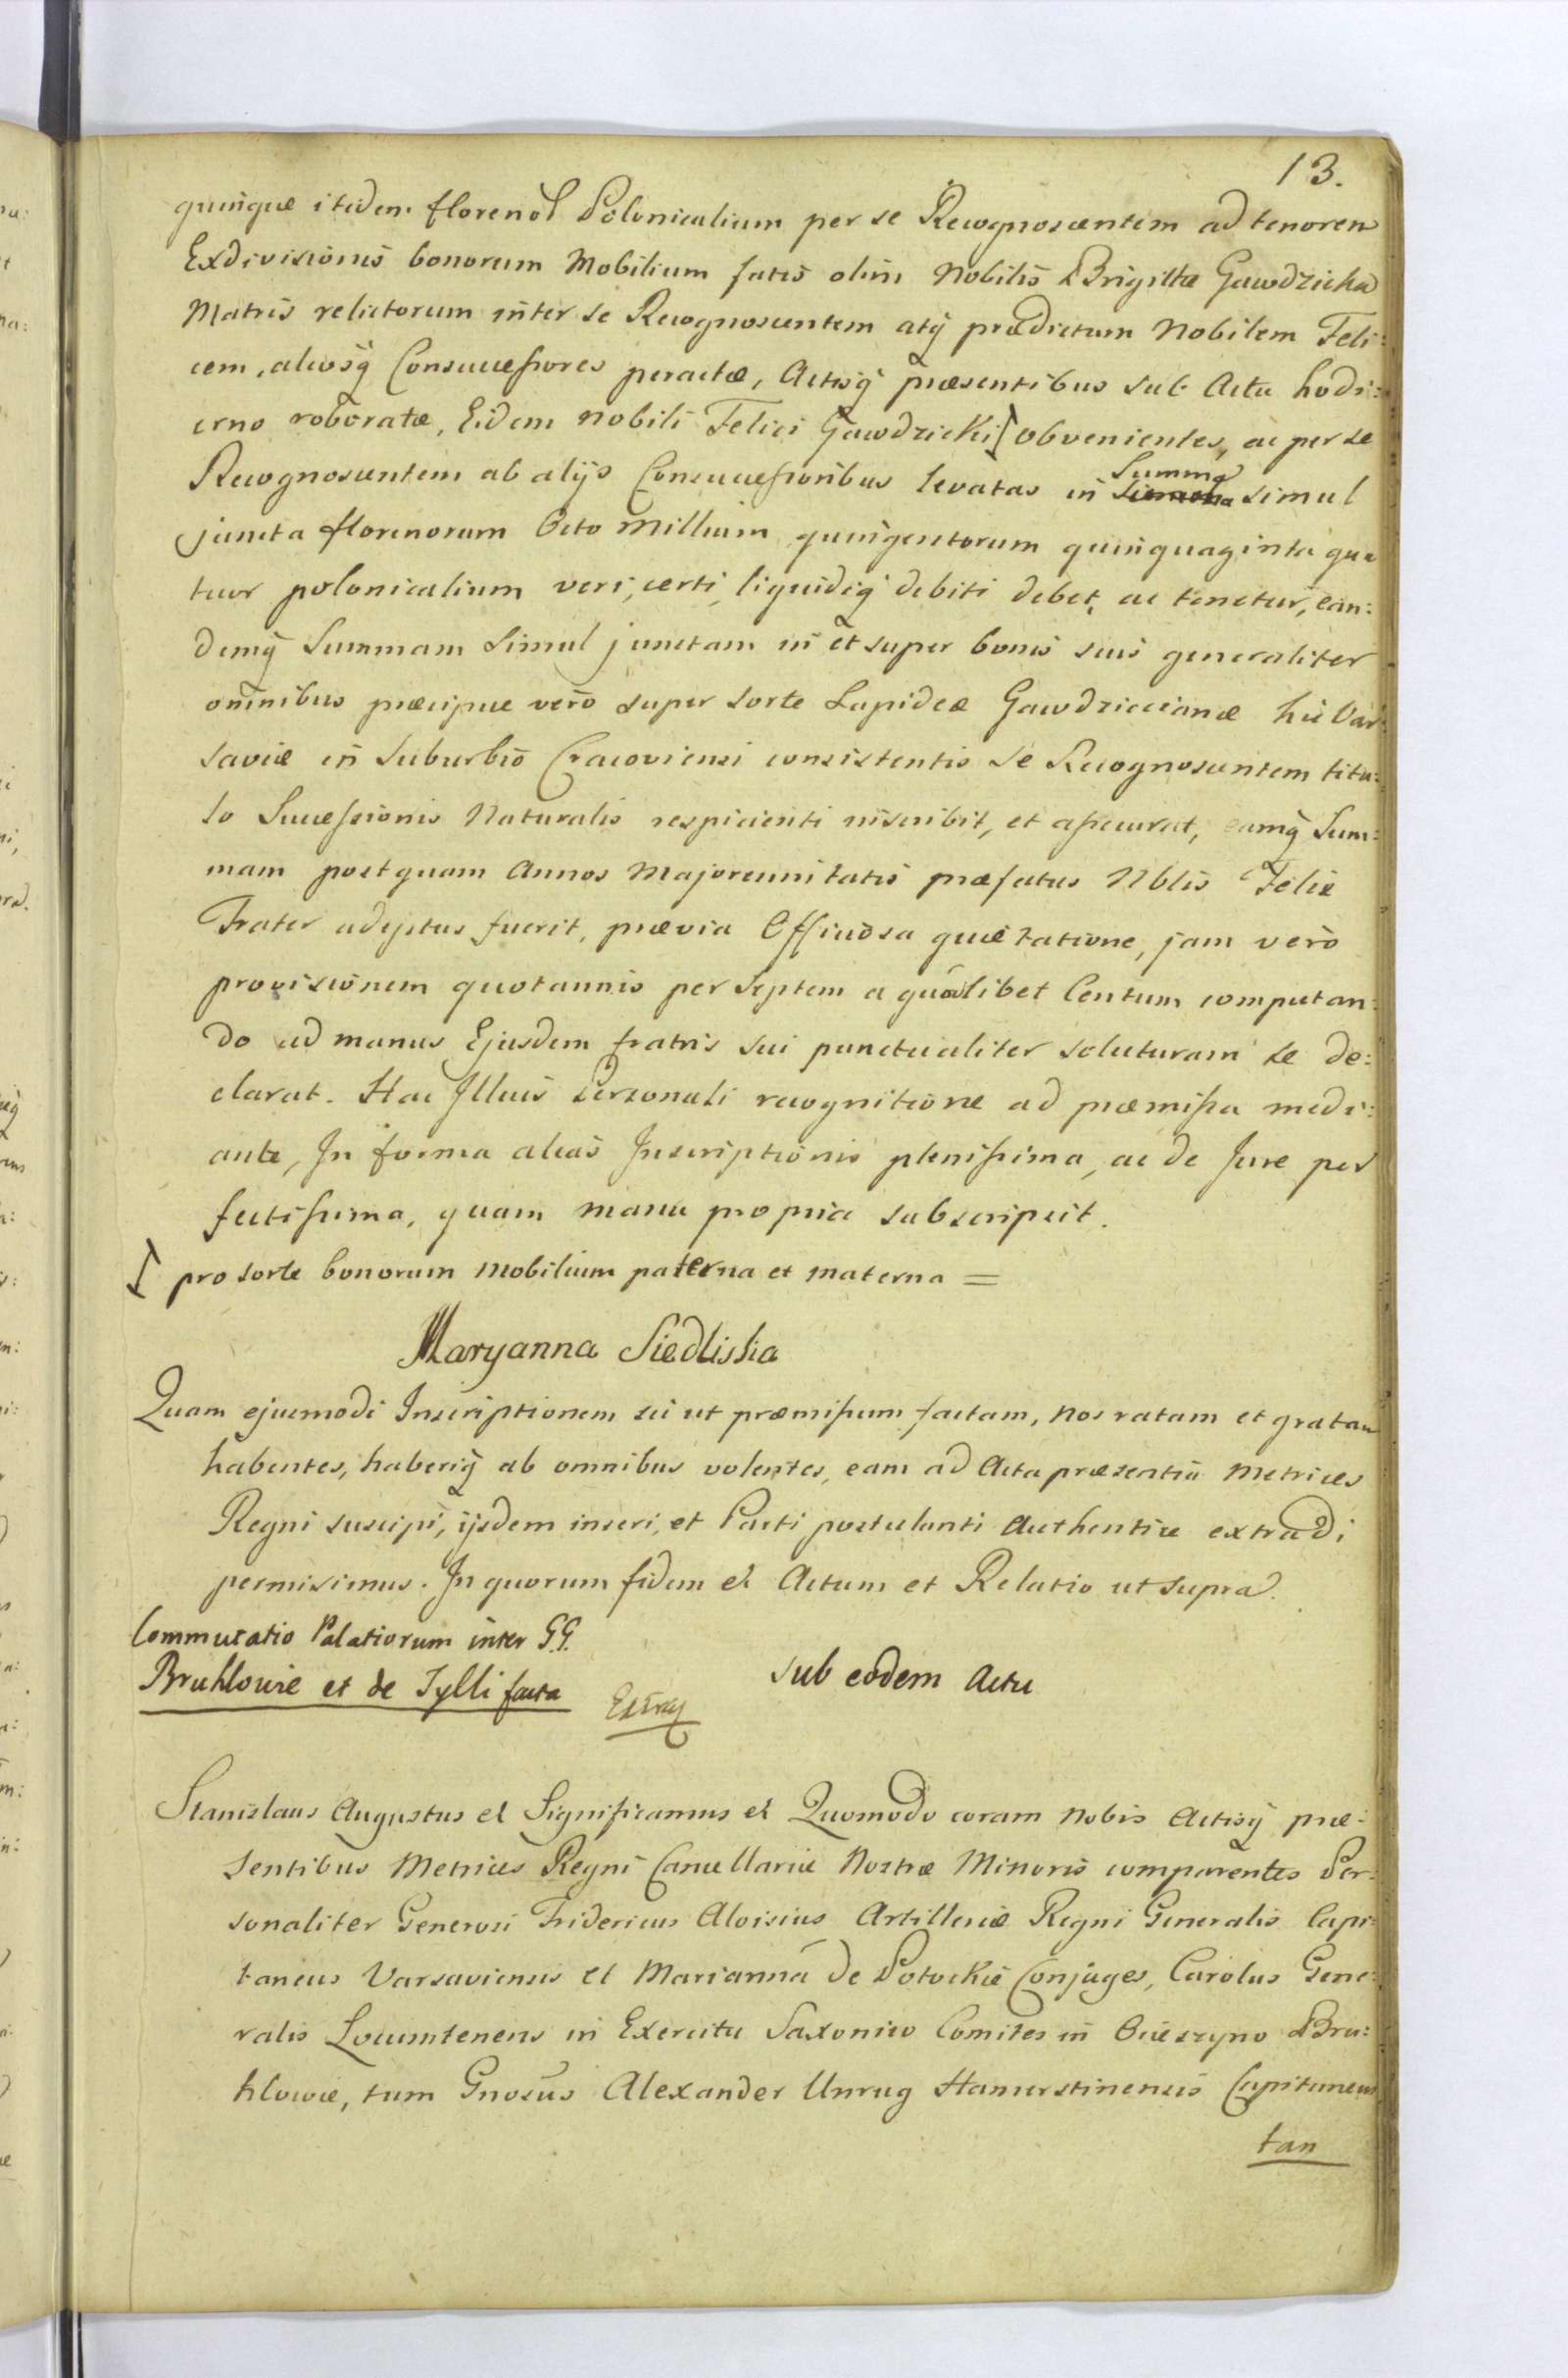 13.
quinque itidem florenos Polonicalium per se Recognoscentem ad tenorem
Exdivisionis bonorum Mobilium fatis olim Nobilis Brigittæ Gawdzicka
Matris relictorum inter se Recognoscentem atq̃ prædictum Nobilem Feli:
cem, aliosq̃ Consuccessores peractæ, Actisq̃ præsentibus sub Actu hodi:
erno roboratæ, Eidem nobili Felici Gawdzicki obvenientes, ac per se
Recognoscentem ab alijs Consuccessoribus levatas in Summa simul
juncta florenorum Octo Millium quingentorum quinquaginta qua
tuor polonicalium veri, certi, liquidiq̃ debiti debet, ac tenetur, ean:
demq̃ Summam simul junctam in et super bonis suis generaliter
omnibus præcipue vero super sorte Lapideæ Gawdziccianæ hic Var:
saviæ in Suburbio Cracoviensi consistentis se Recognoscentem titu:
lo Successionis Naturalis respicienti inscribit, et assecurat, eamq̃ Sum:
mam postquam Annos Majorennitatis præfatus Nblis Felix
Frater adeptus fuerit, prævia Officiosa quietatione, jam vero
provisionem quotannis per Septem a quolibet Centum computan:
do ad manus Ejusdem fratris sui punctualiter soluturam se de:
clarat. Hac Illius Personali recognitione ad præmissa medi:
ante, In forma alias Inscriptionis plenissima, ac de Jure per
fectissima, quam manu propria subscripsit.
pro sorte bonorum Mobilium paterna et materna =
Maryanna Siedliska
Quam ejusmodi Inscriptionem sic ut præmissum factam, Nos ratam et gratam
habentes, haberiq̃ ab omnibus volentes, eam ad Acta præsentia Metrices
Regni suscipi, ijsdem inseri, et Parti postulanti Authentice extradi
permisimus. In quorum fidem et Actum et Relatio ut supra.
Commutatio Palatiorum inter G.G.
Bruhlowie et de Tylli facta
Extray
Sub eodem Actu
Stanislaus Augustus et Significamus et Quomodo coram Nobis Actisq̃ præ:
sentibus Metrices Regni Cancellariæ Nostræ Minoris comparentes Per:
sonaliter Generosi Fridericus Aloisius Artilleriæ Regni Generalis Capi:
taneus Varsaviensis et Marianna de Potockie Conjuges, Carolus Gene:
ralis Locumtenens in Exercitu Saxonico Comites in Ocieszyno Bru:
hlowie, tum Gnosus Alexander Unrug Hamersztinensis Capitaneus
tan